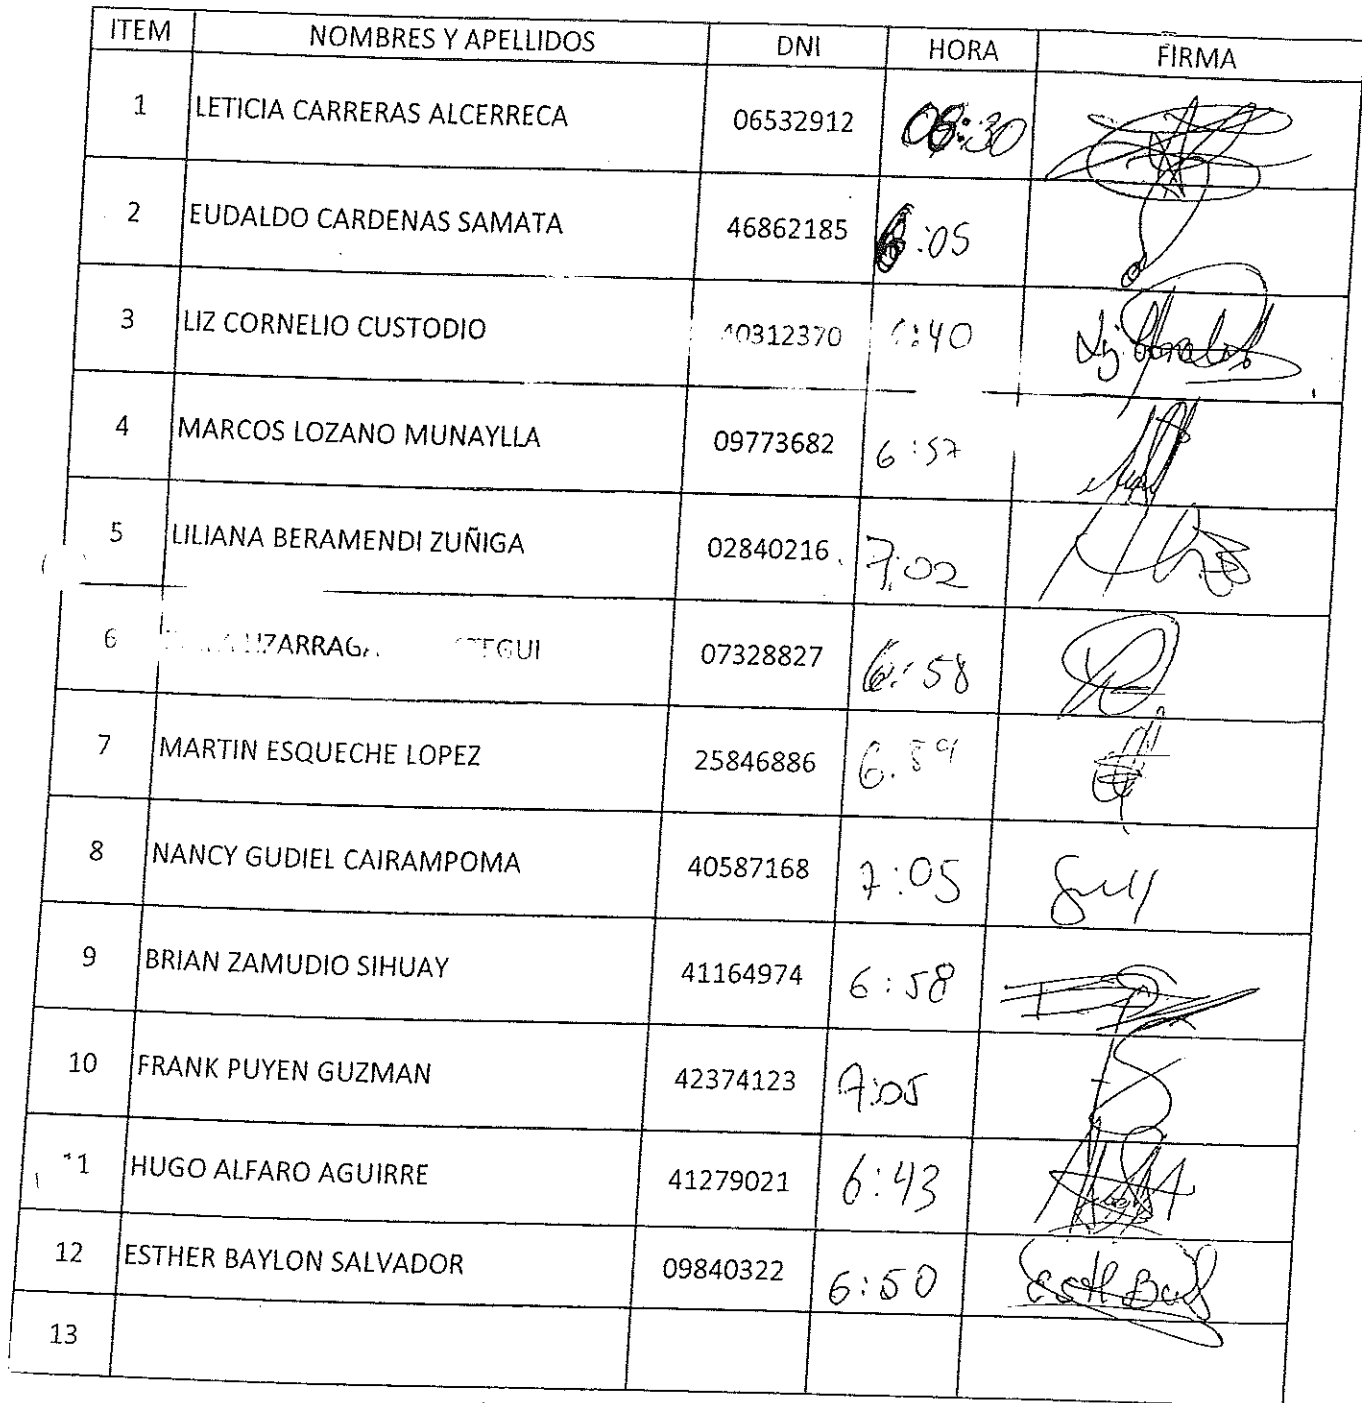 ITEM NOMBRES Y APELLIDOS DNI HORA FIRMA
1 LETICIA CARRERAS ALCERRECA 06532912 06:30
2 EUDALDO CARDENAS SAMATA 46862185 6:05
3 LIZ CORNELIO CUSTODIO 40312370 :40
4 MARCOS LOZANO MUNAYLLA 09773682 6:57
5 LILIANA BERAMENDI ZUÑIGA 02840216 7:02
6 07328827 6:58
7 MARTIN ESQUECHE LOPEZ 25846886 6.59
8 NANCY GUDIEL CAIRAMPOMA 40587168 7:05
9 BRIAN ZAMUDIO SIHUAY 41164974 6:58
10 FRANK PUYEN GUZMAN 42374123 7:05
11 HUGO ALFARO AGUIRRE 41279021 6:43
12 ESTHER BAYLON SALVADOR 09840322 6:50
13